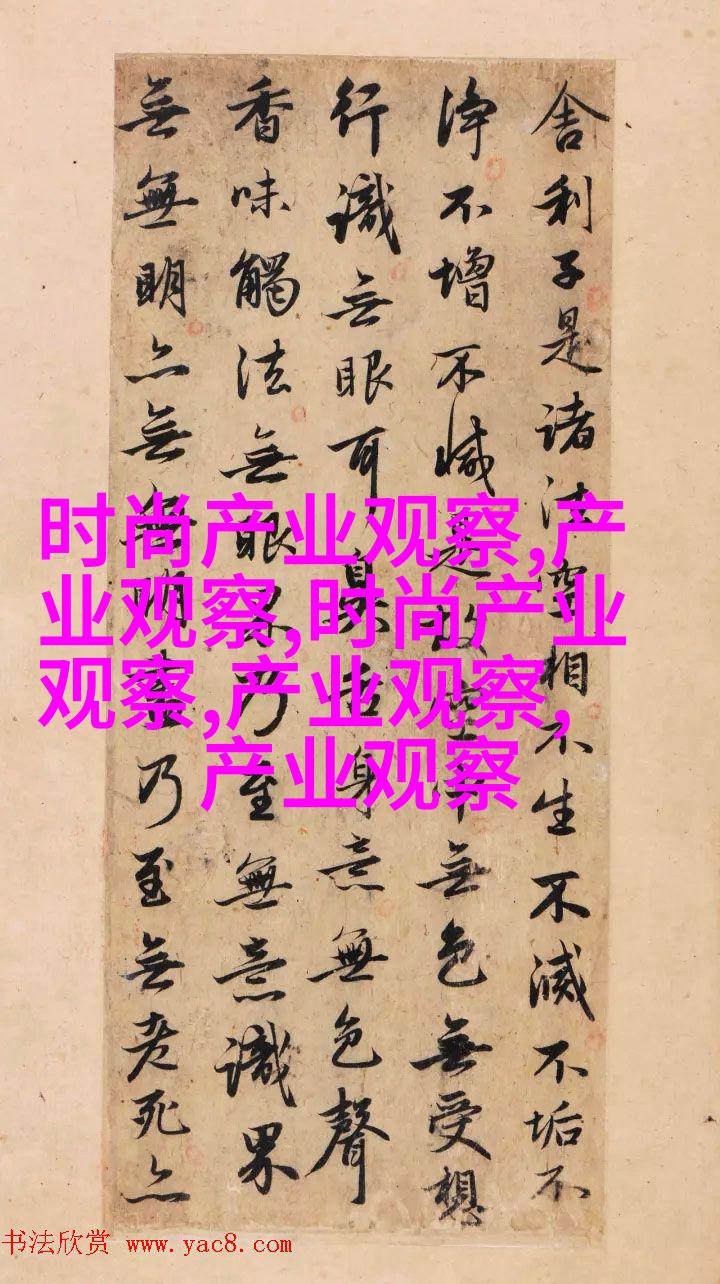 舍利子是諸法空相不生不滅不垢不
淨不增不減是故空中無色無受想
行識無眼耳鼻舌身意無色聲
香味觸法無眼界乃至無意識界
無無明亦無無明盡乃至無老死亦
时尚产业观察,产
业观察,时尚产业
观察,产业观察,
产业观察
书法欣赏 www.yac8.com